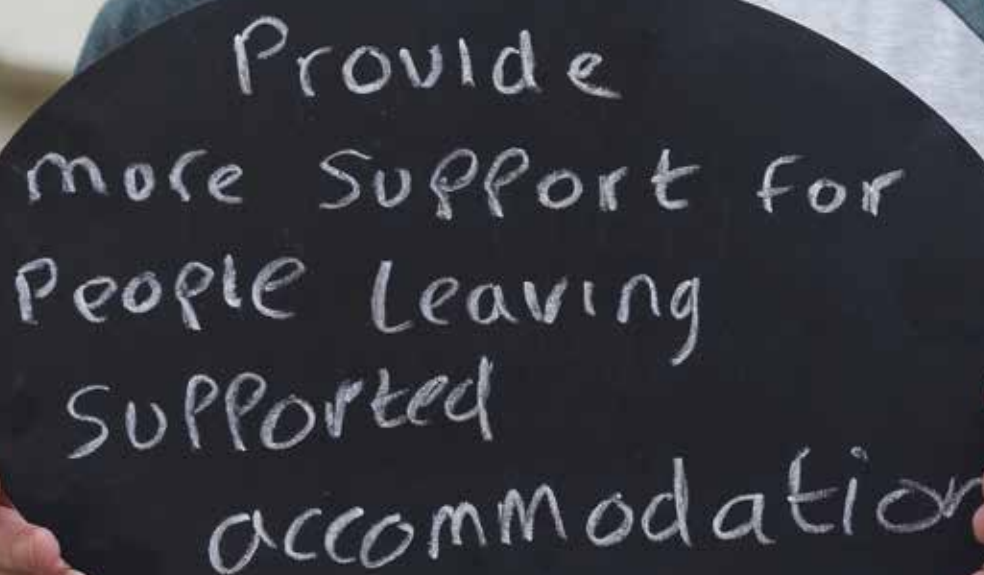 Provide
more Support for
People Leaving
Supported
accommodation